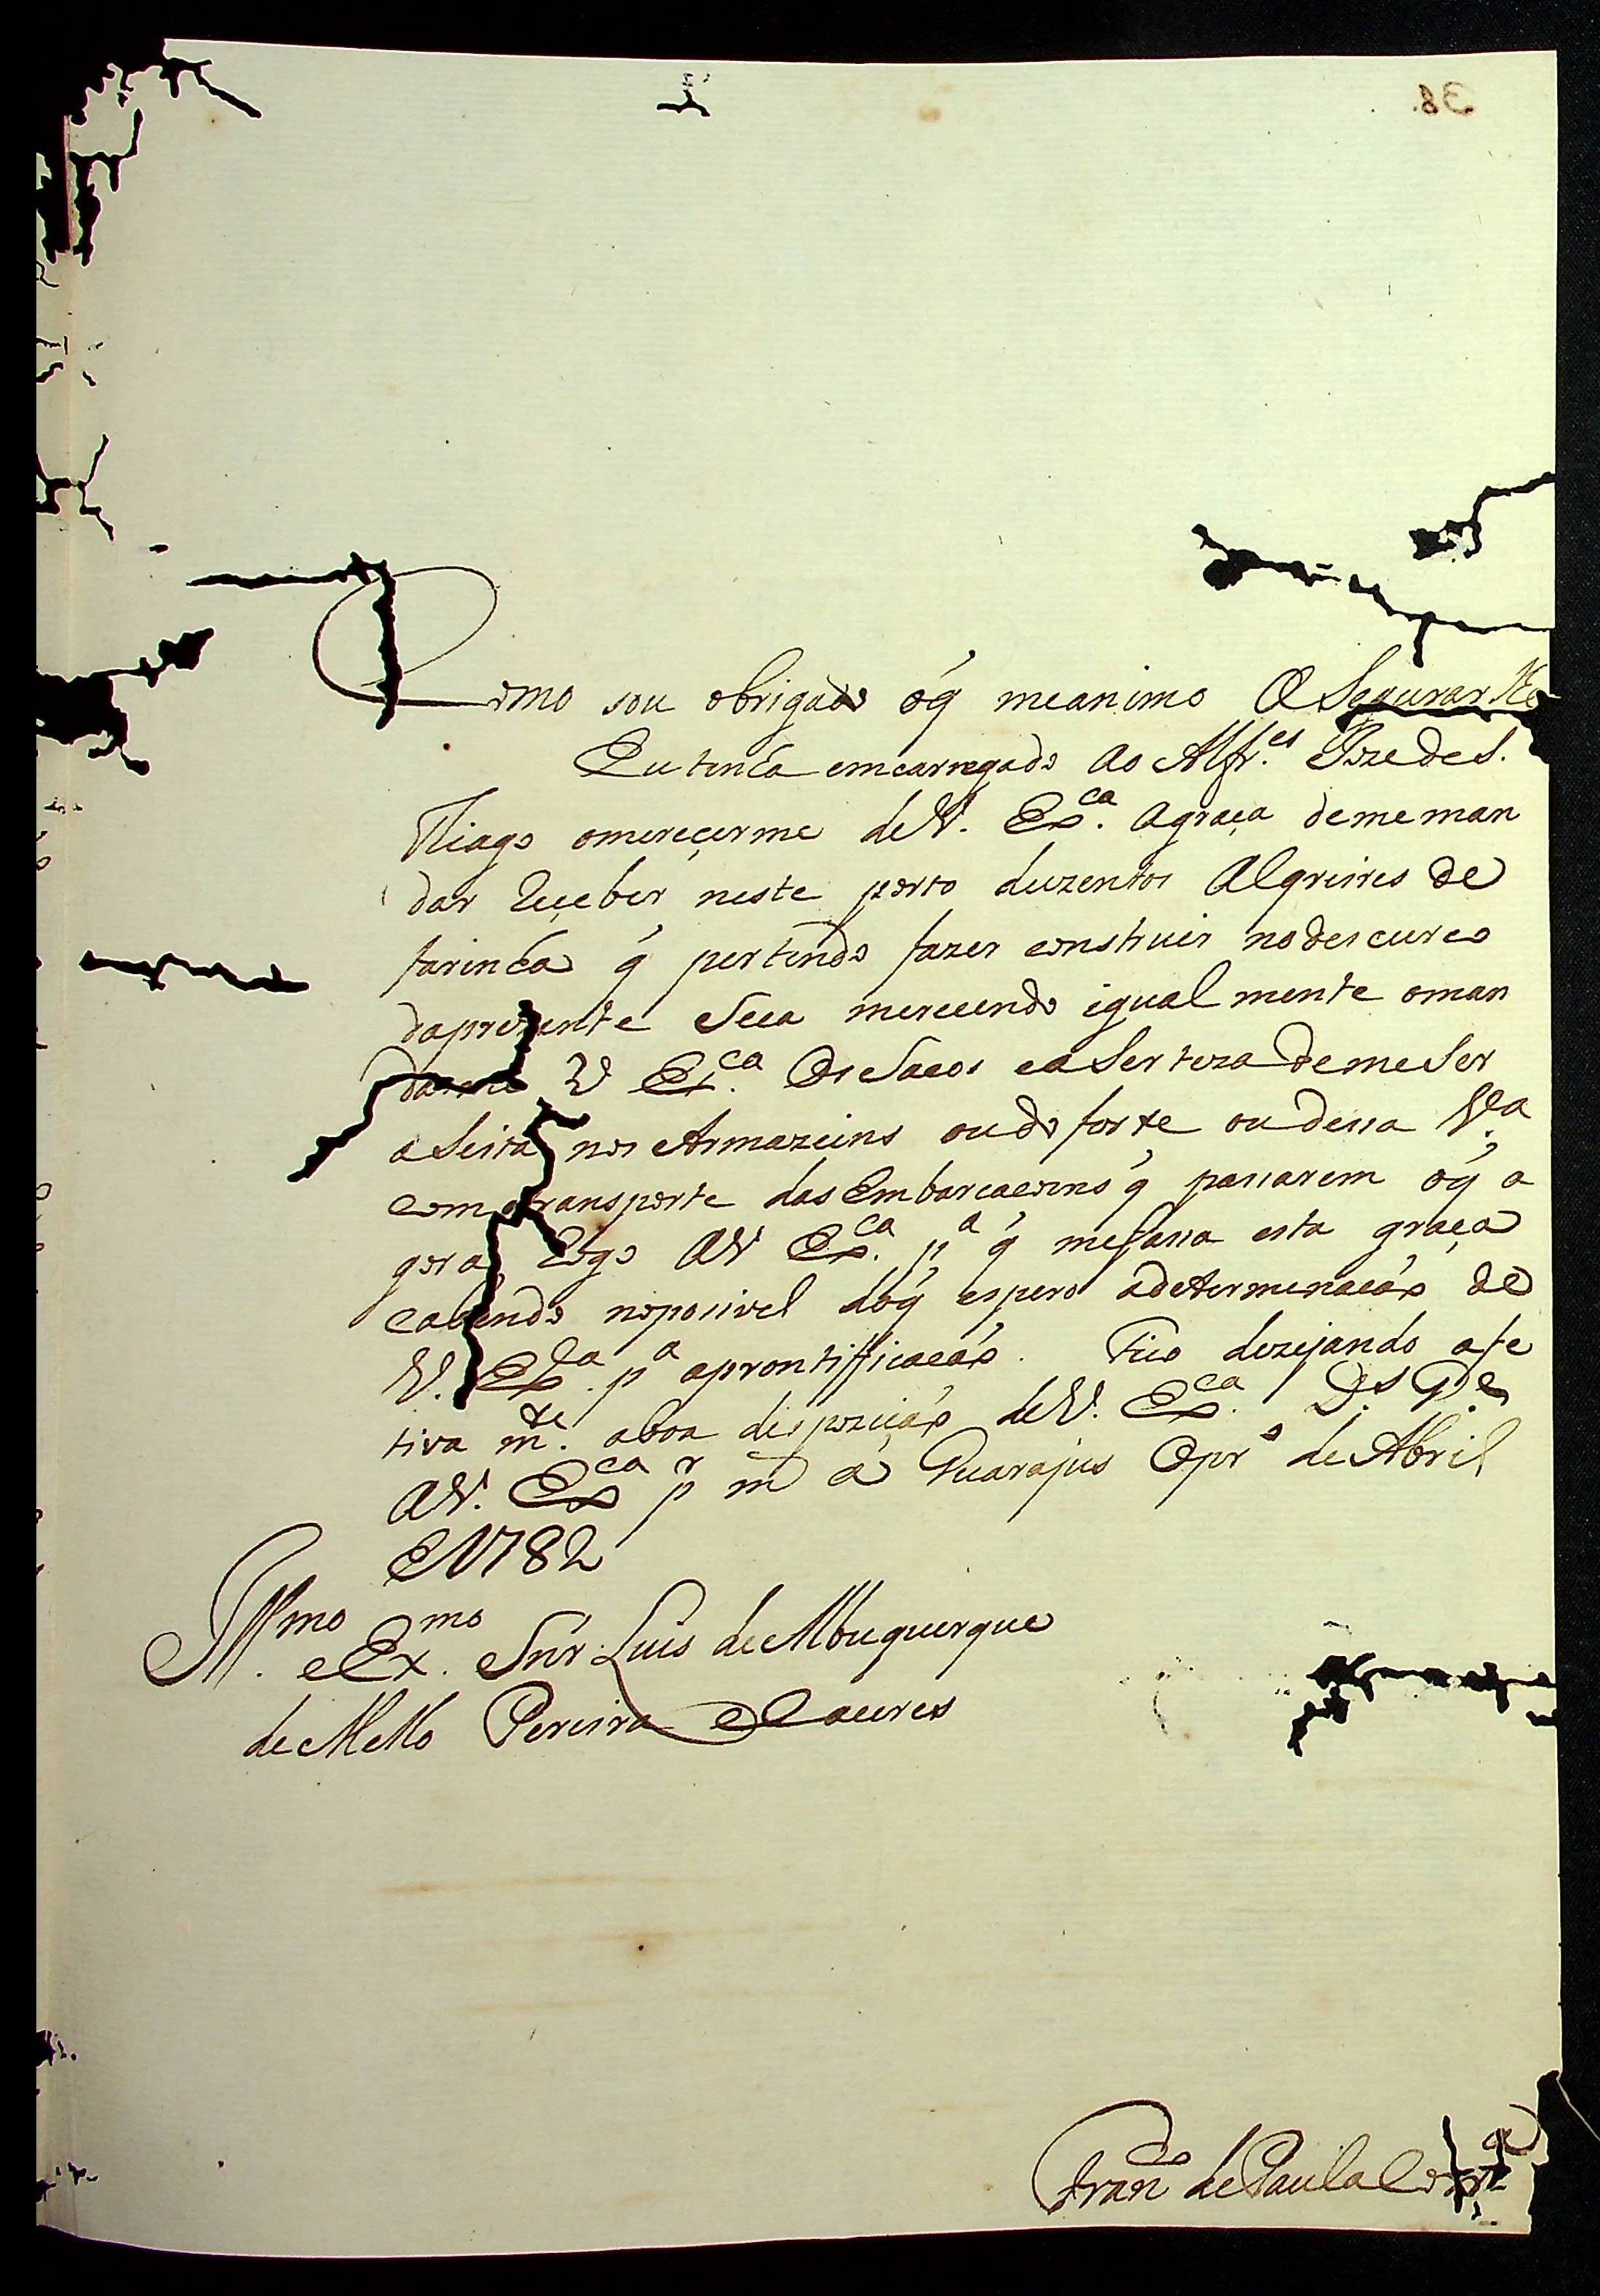 38.
Como sou obrigado óq̃ meanimo A Segurar
Eu tenha emcarregado Ao Alfr.es Joze de S.
Thiago omereçerme deV. Ex.ca agraça deme man
dar Reçeber neste porto duzentos Alqreires de
farinha q̃ pertendo fazer construir nodescurco
daprezente Seca merecendo igual mente oman
darme V Ex.ca Os Sacos ea Serteza de me Ser
aSeita nos Armazeins oudo forte ou dessa V.a
Com otransporte das Embarcacoins q̃ passarem óq̃ a
gora Rogo AV Ex.ca p.a q̃ mefassa esta graça
Cabendo nopossivel dóq̃ espero adetermenacáo de
V. Ex.ca p.a aprontifficacáo. Fico dezejando afe
tiva m.te aboa dispozicáo deV. Ex.ca D.s G.e
AV. Ex.ca p.r m a Guarajus Opr.o de Abril
e 1782
Ill.mo e Ex.mo Snr Luis de Albuquerque
de Mello Pereira e Caceres
Fran.co de Paula